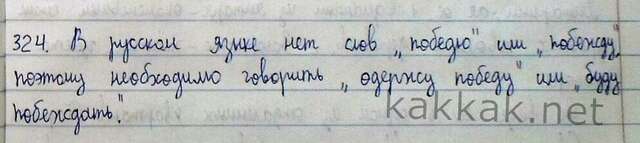 324. В русском языке нет слов „победю" или „побежду",
поэтому необходимо говорить „одержу победу" или „буду
побеждать".
kakkak.net